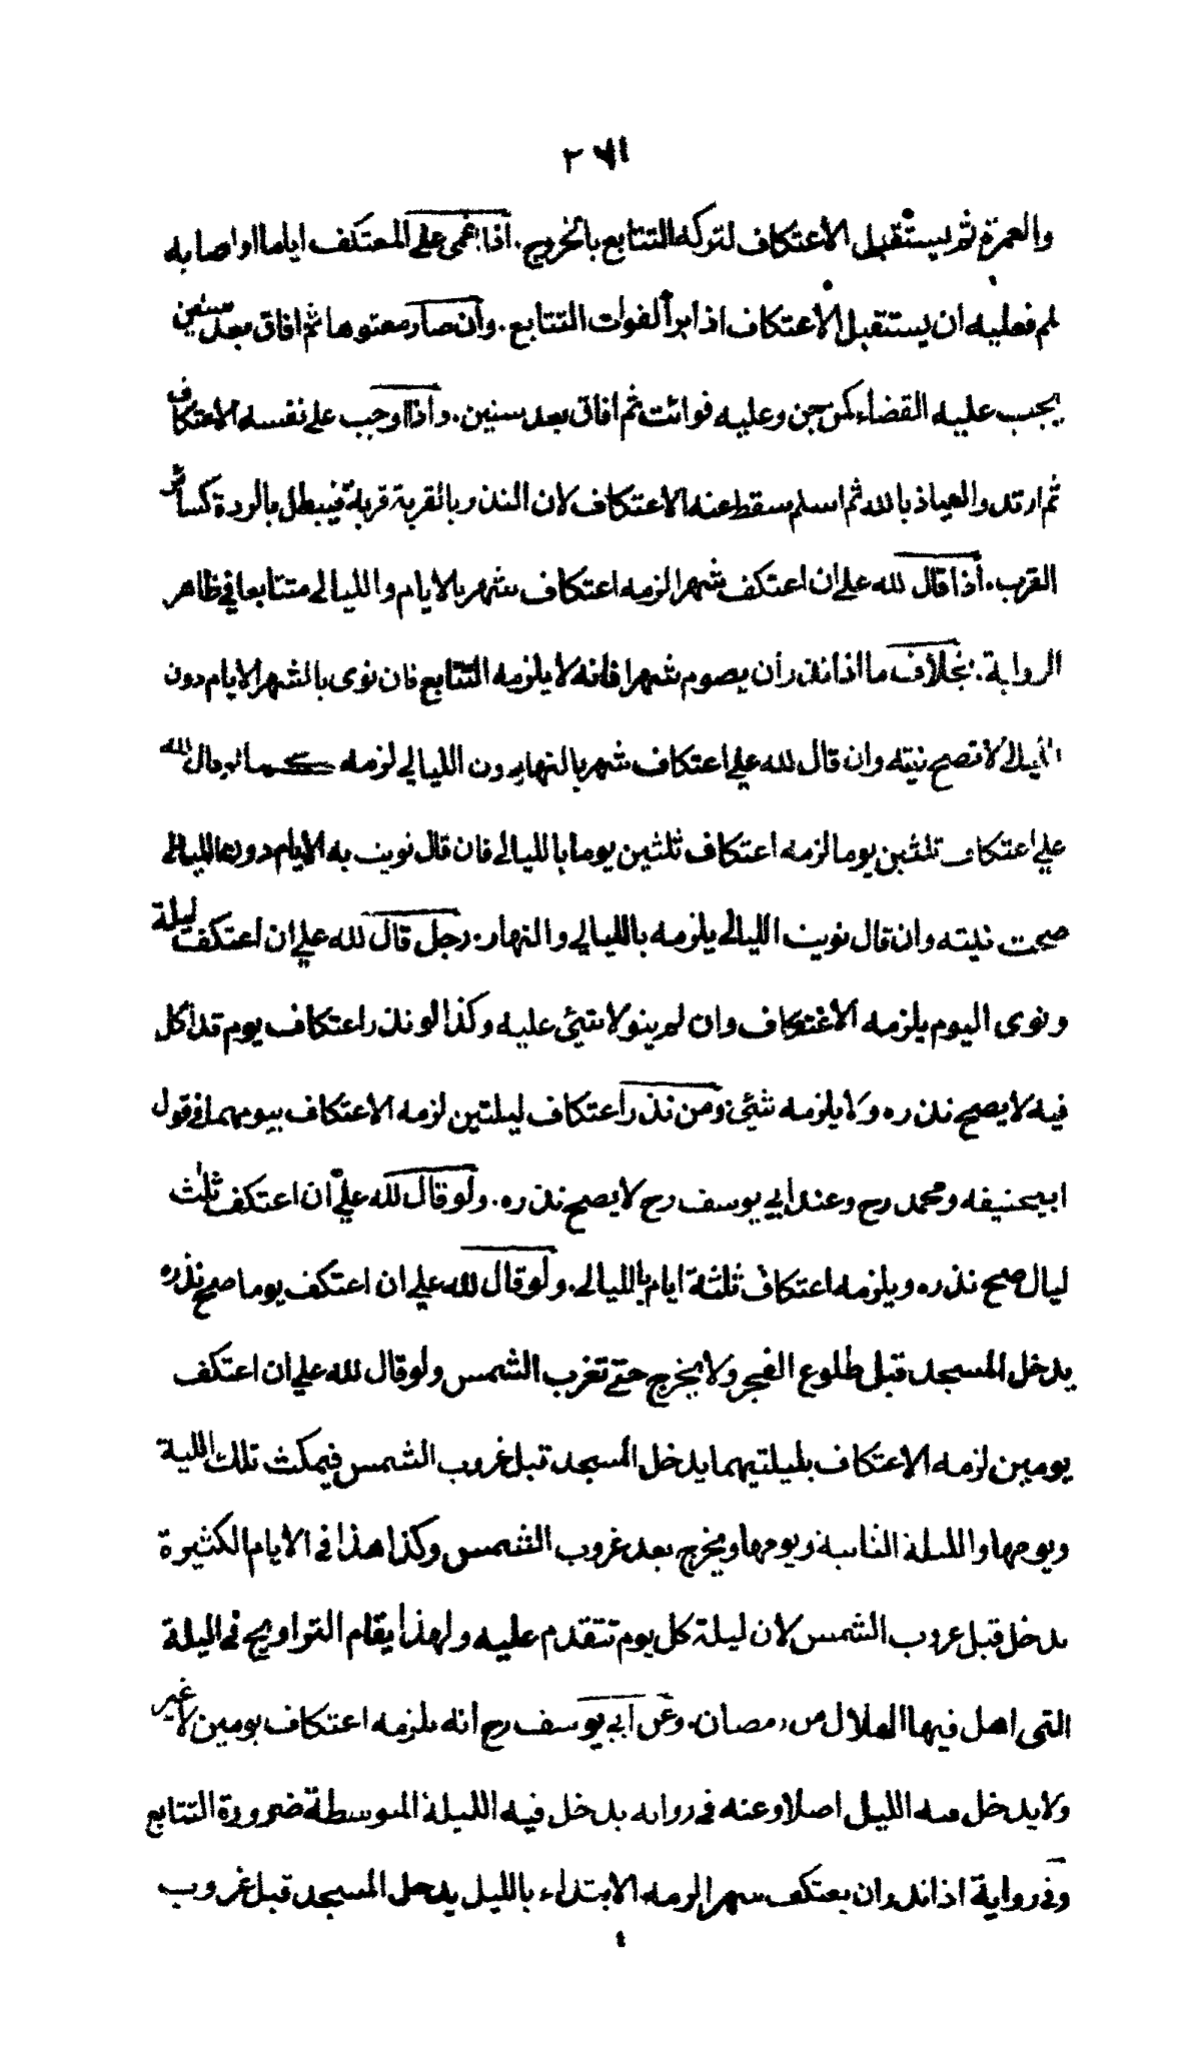 والعمرة ثم يستقبل الاعتكاف لتركه التتابع بالخروج. اذا اغمى على المعتكف اياما او اصابه
لمم فعليه ان يستقبل الاعتكاف اذا برأ لفوات التتابع. وان صار معتوها ثم افاق بعد سنين
يجب عليه القضاء كمن جن وعليه فوائت ثم افاق بعد سنين. واذا اوجب على نفسه الاعتكاف
ثم ارتد والعياذ بالله ثم اسلم سقط عنه الاعتكاف لان النذر بالقربة قربة فيبطل بالردة كسائر
القرب. اذا قال لله على ان اعتكف شهرا لزمه اعتكاف شهر بالايام والليالى متتابعا فى ظاهر
الرواية. بخلاف ما اذا نذر أن يصوم شهرا فانه لا يلزمه التتابع فان نوى بالشهر الايام دون
الليالى لا تصح نيته وان قال لله على اعتكاف شهر بالنهار دون الليالى لزمه كما قال لله
على اعتكاف ثلثين يوما لزمه اعتكاف ثلثين يوما بالليالى فان قال نويت به الايام دون الليالى
صحت نيته وان قال نويت الليالى يلزمه بالليالى والنهار. رجل قال لله على ان اعتكف ليلة
ونوى اليوم يلزمه الاعتكاف وان لم ينو لا شئ عليه وكذا لو نذر اعتكاف يوم قد اكل
فيه لا يصح نذره ولا يلزمه شئ ومن نذر اعتكاف ليلتين لزمه الاعتكاف بيومهما فى قول
ابيحنيفه ومحمد رح وعند ابى يوسف رح لا يصح نذره. ولو قال لله علىّ ان اعتكف ثلث
ليال صح نذره ويلزمه اعتكاف ثلثة ايام بالليالى. ولو قال لله على ان اعتكف يوما صح نذره
يدخل المسجد قبل طلوع الفجر ولا يخرج حتى تغرب الشمس ولو قال لله على ان اعتكف
يومين لزمه الاعتكاف بليلتيهما يدخل المسجد قبل غروب الشمس فيمكث تلك الليلة
ويومها والليلة الثانية ويومها ويخرج بعد غروب الشمس وكذا هذا فى الايام الكثيرة
يدخل قبل غروب الشمس لان ليلة كل يوم تتقدم عليه ولهذا يقام التراويح فى الليلة
التى اهل فيها الهلال من رمضان. وعن ابى يوسف رح انه يلزمه اعتكاف يومين لا غير
ولا يدخل فيه الليل اصلا وعنه فى رواية يدخل فيه الليلة المتوسطة ضرورة التتابع
وفى رواية اذا نذر ان يعتكف شهرا لزمه الابتداء بالليل يدخل المسجد قبل غروب